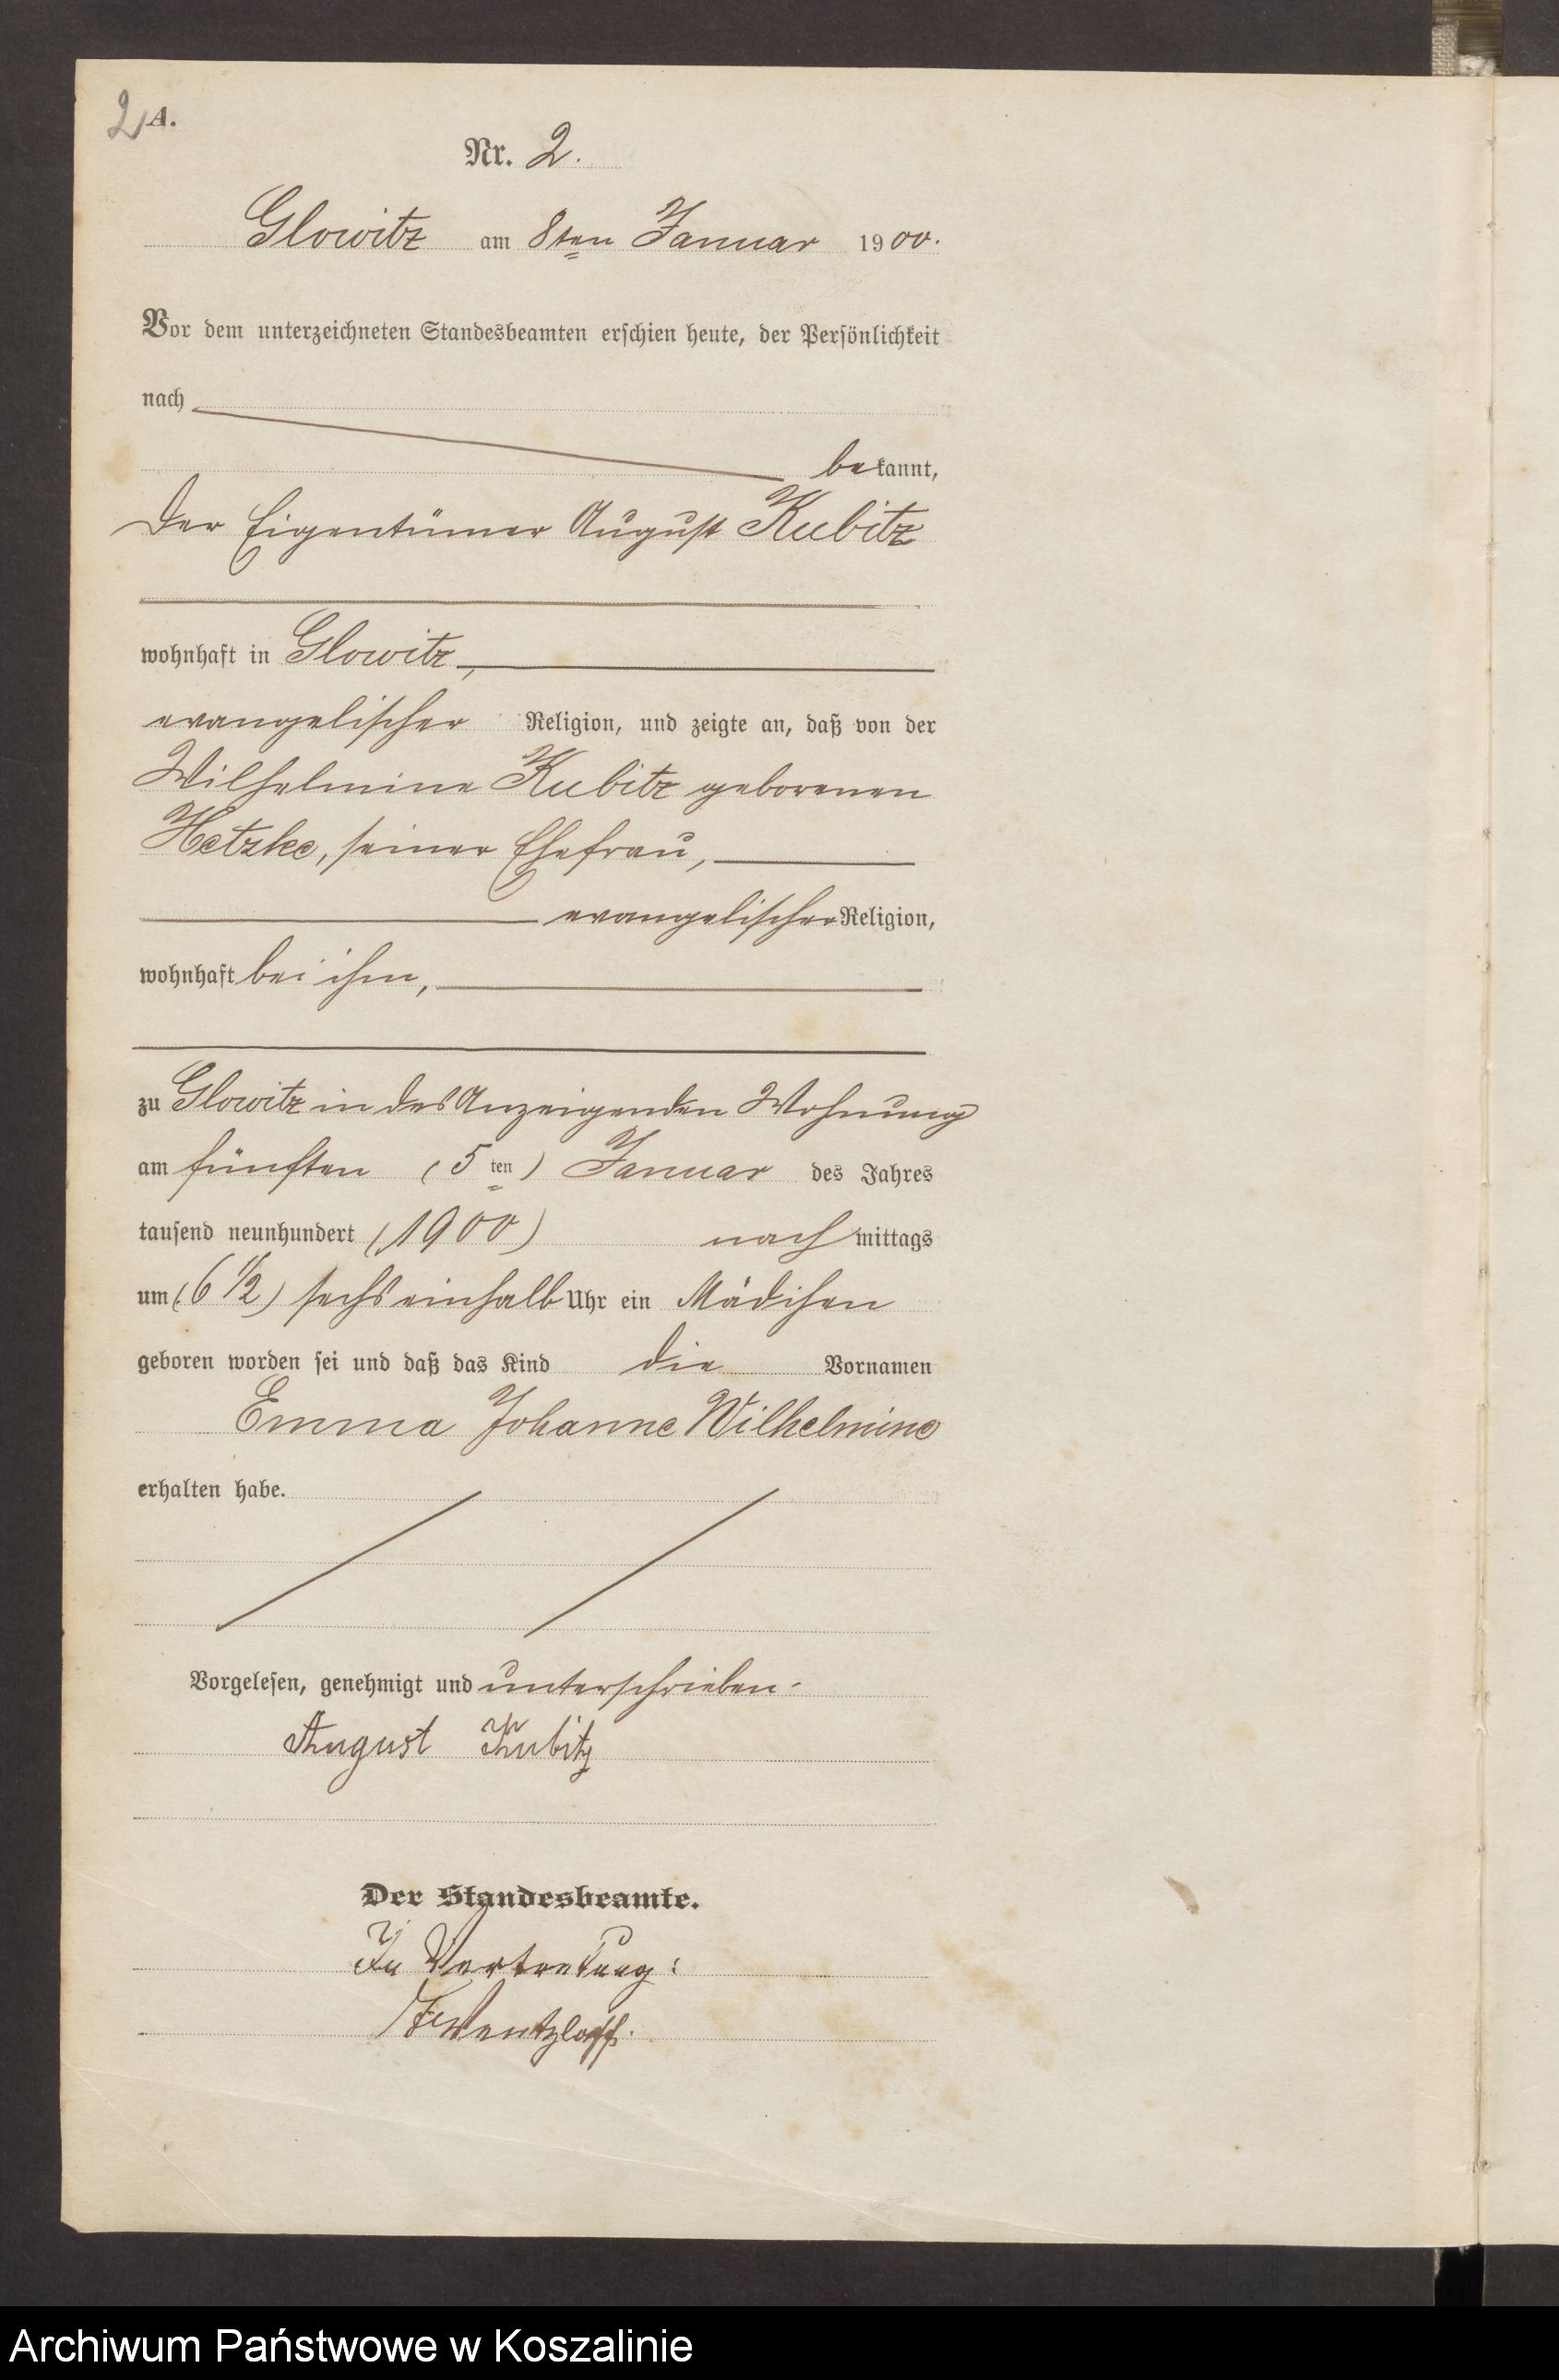 2 A.
Nr. 2.
Glowitz am 8ten Januar 1900.
Vor dem unterzeichneten Standesbeamten erschien heute, der Persönlichkeit
nach
bekannt,
der Eigentümer August Kubitz
wohnhaft in Glowitz,
evangelischer Religion, und zeigte an, daß von der
Wilhelmine Kubitz geborenen
Hetzke, seiner Ehefrau,
evangelischer Religion,
wohnhaft bei ihm,
zu Glowitz in des Anzeigenden Wohnung
am fünften (5 ten) Januar des Jahres
tausend neunhundert (1900) nachmittags
um (6 1/2) sechs einhalb Uhr ein Mädchen
geboren worden sei und daß das Kind die Vornamen
Emma Johanne Wilhelmine
erhalten habe.
Vorgelesen, genehmigt und unterschrieben.
August Kubitz
Der Standesbeamte.
In Vertretung:
Wentzlaff.
Archiwum Państwowe w Koszalinie